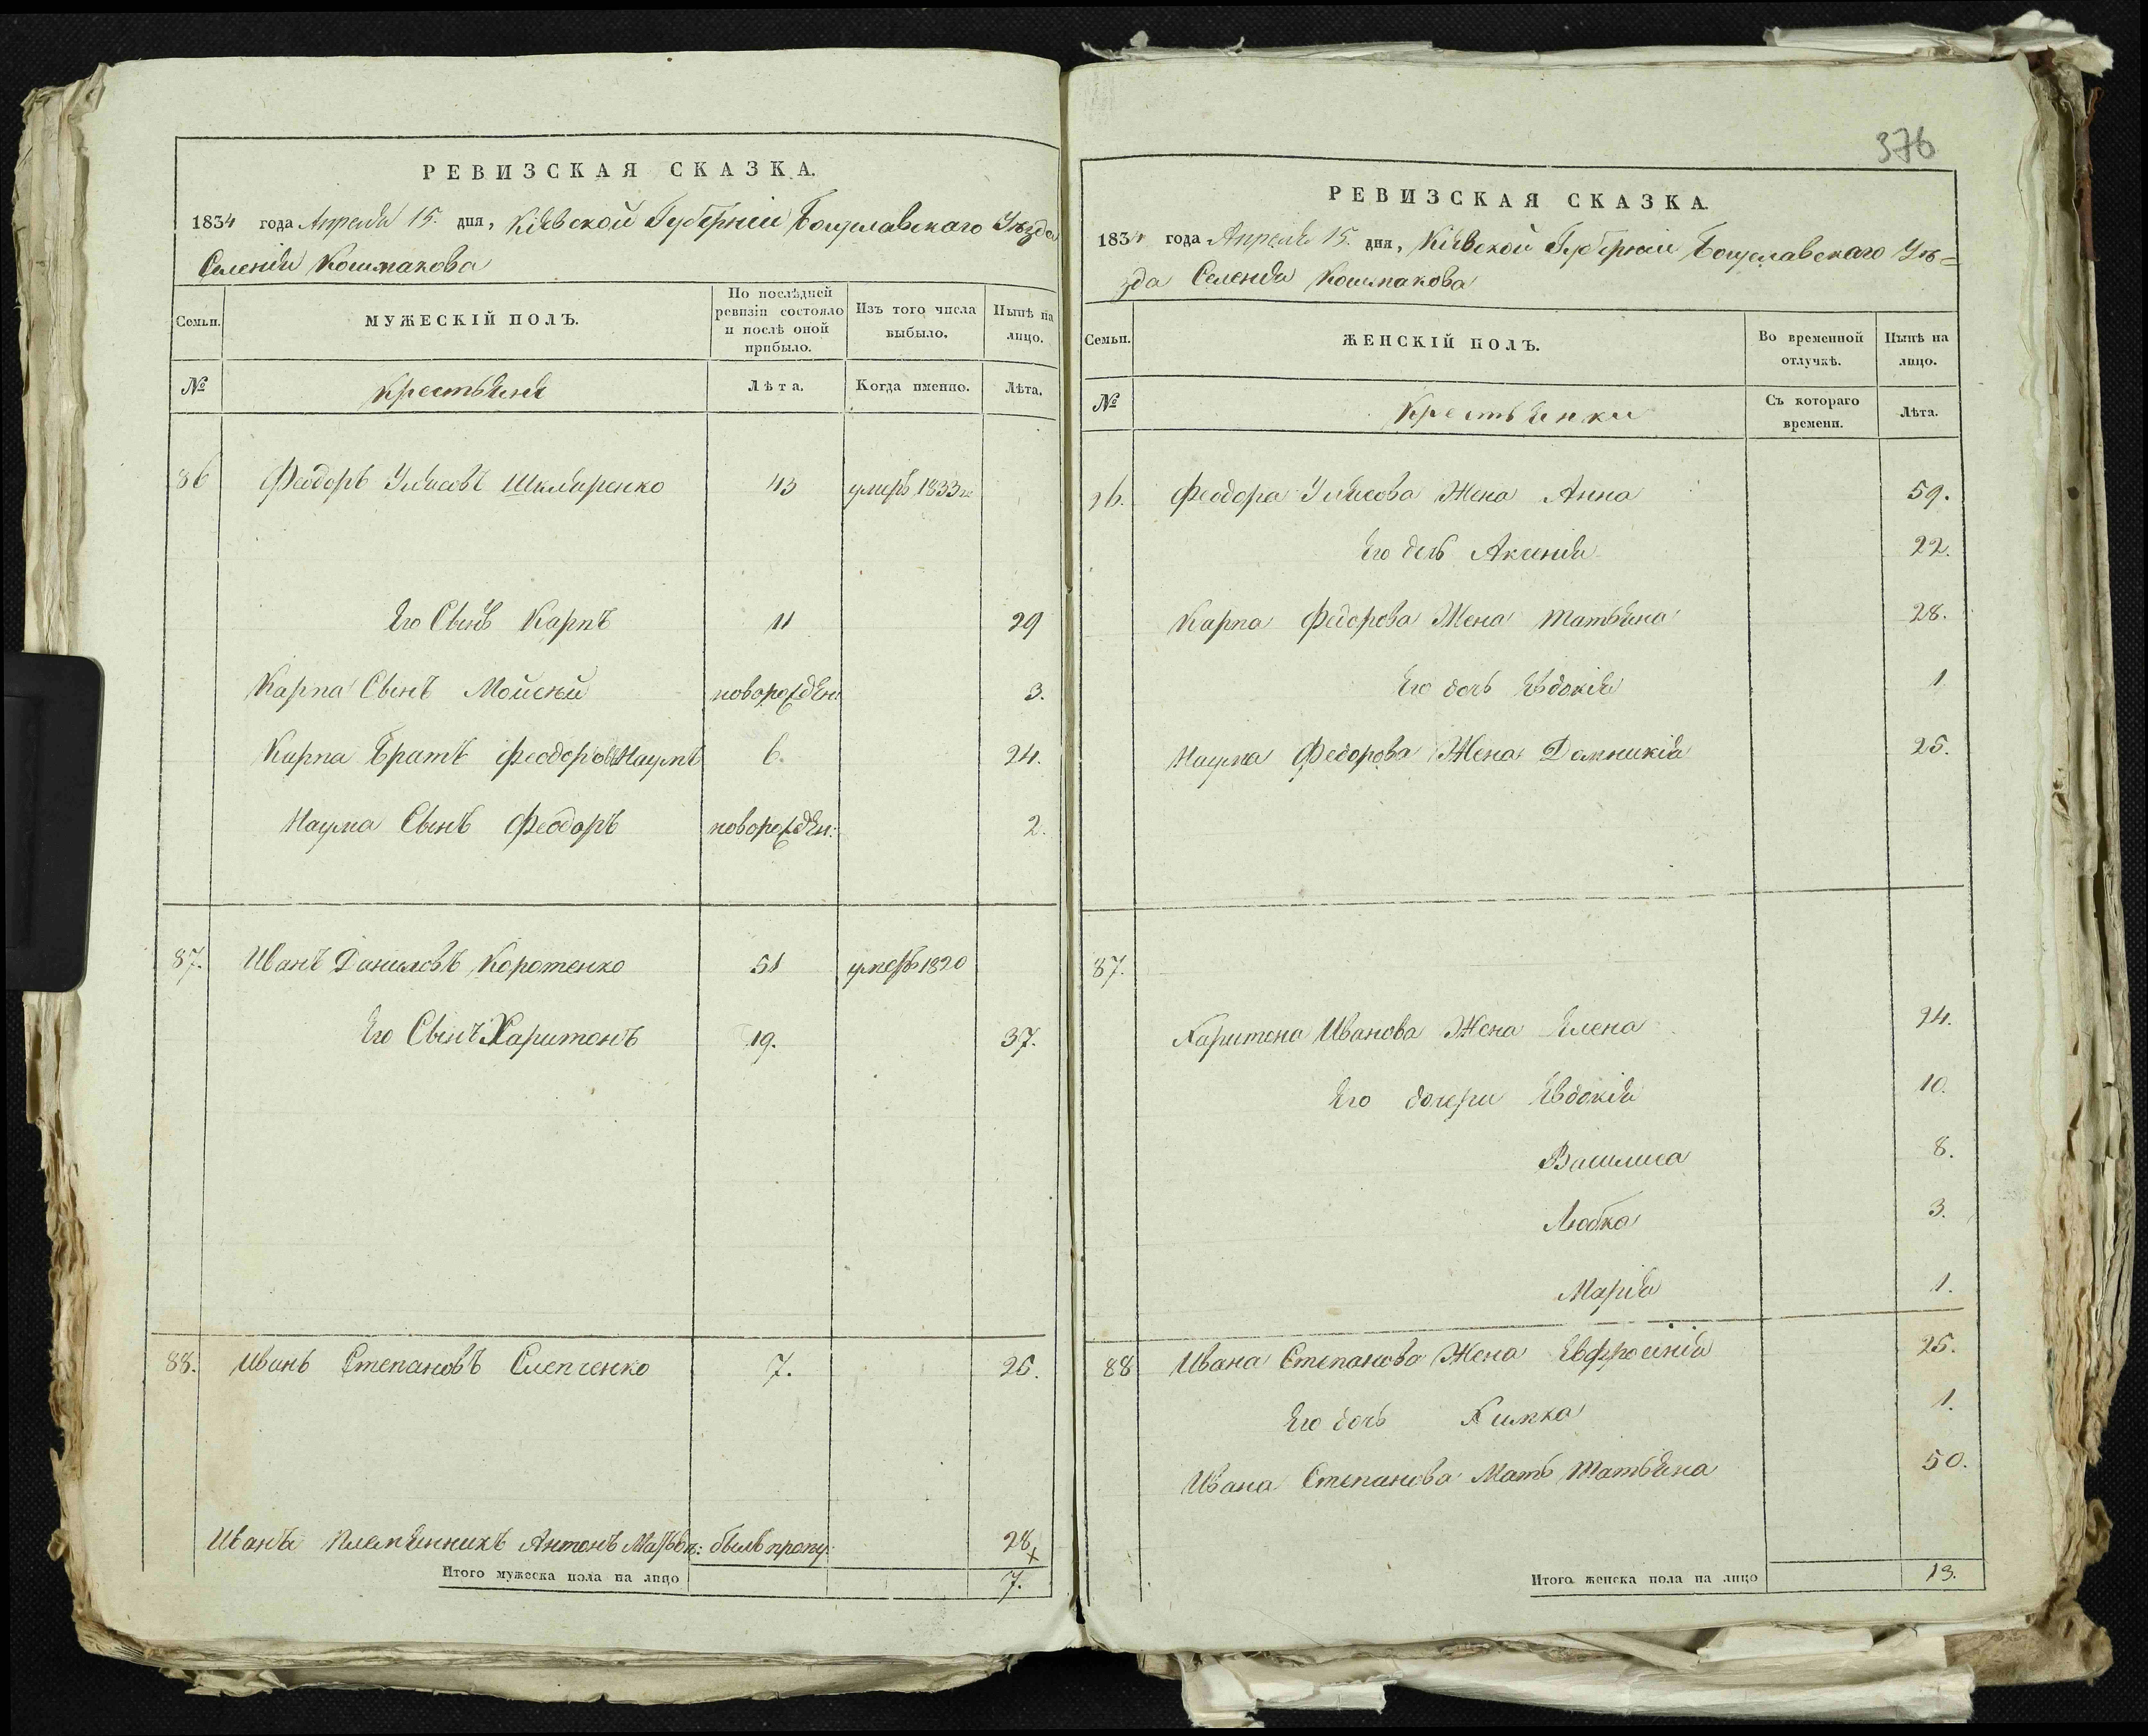 РЕВИЗСКАЯ СКАЗКА.
1834 года Апреля 15. дня, Кіевской Губерніи Богуславскаго Уѣзда
Селенія Кошмакова
Семьи.
МУЖЕСКІЙ ПОЛЪ.
По послѣдней ревизіи состояло и послѣ оной прибыло.
Изъ того числа выбыло.
Нынѣ на лицо.
№
Крестьяне
Лѣта.
Когда именно.
Лѣта.
86 Феодоръ Улясовъ Шкляренко 43 умеръ 1833 го
Его Сынъ Карпъ 11 29
Карпа Сынъ Мойсей новорожден. 3.
Карпа Братъ Феодоровъ Наумъ 6. 24.
Наума Сынъ Феодоръ новорожден: 2.
87. Иванъ Даниловъ Коротенко 51 умеръ 1820
Его Сынъ Харитонъ 19. 37.
88. Иванъ Степановъ Слепченко 7. 25.
Ивана Племянникъ Антонъ былъ пропу: 28
Итого мужеска пола на лицо 7.
376
РЕВИЗСКАЯ СКАЗКА.
1834 года Апреля 15. дня, Кіевской Губерніи Богуславскаго Уѣ=
зда Селенія Кошмакова
Семьи.
ЖЕНСКІЙ ПОЛЪ.
Во временной отлучкѣ.
Нынѣ на лицо.
№
Крестьянки
Съ котораго времени.
Лѣта.
86. Феодора Улясова Жена Анна 59.
Его дочь Аксенія 22.
Карпа Федорова Жена Татьяна 28.
Его дочь Евдокія 1
Наума Федорова Жена Домникія 25.
87.
Харитона Иванова Жена Елена 24.
Его дочери Евдокія 10.
Василиса 8.
Любка 3.
Марія 1.
88 Ивана Степанова Жена Евфросинія 25.
Его дочь Химка 1.
Ивана Степанова Мать Татьяна 50.
Итого женска пола на лицо 13.